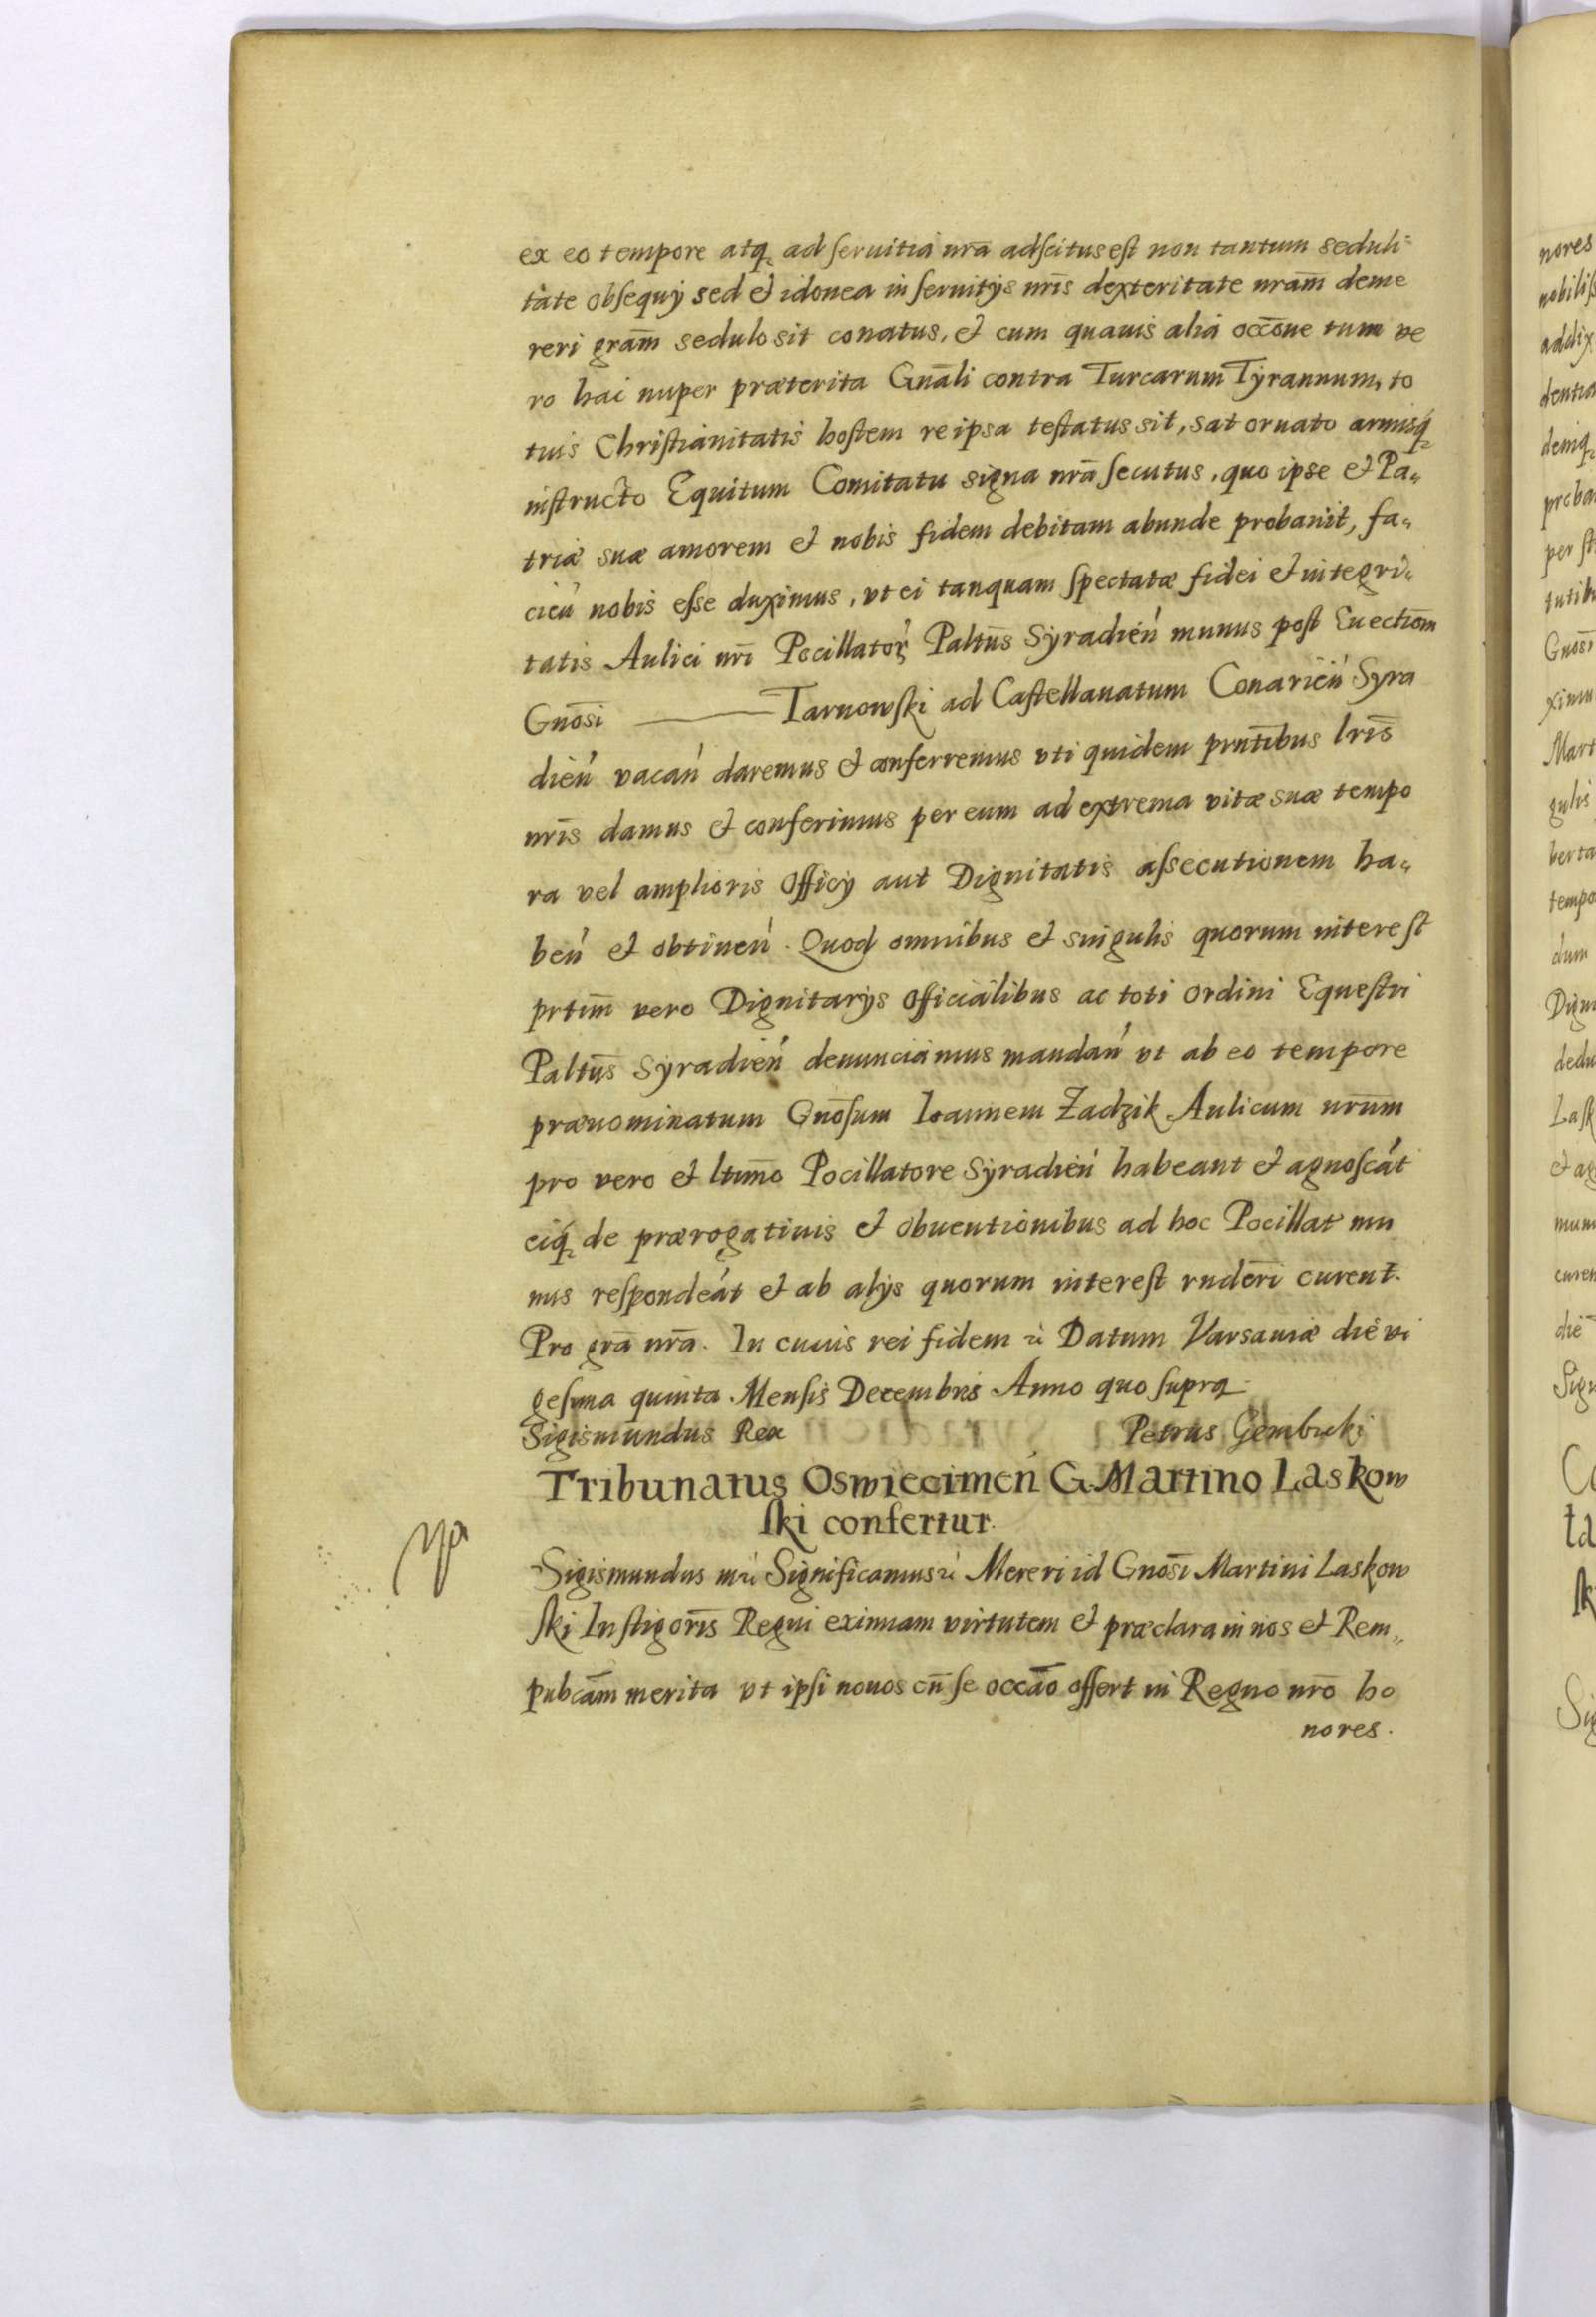 ex eo tempore atq; ad seruitia nrā adscitus est non tantum seduli=
tate obsequÿ sed et idonea in seruitÿs nrīs dexteritate nram̄ deme
reri gram̄ sedulo sit conatus, et cum quauis alia occōne tum ve
ro hac nuper præterita Gnāli contra Turcarum Tÿrannum, to
tius Christianitatis hostem re ipsa testatus sit, sat ornato armisq́;
instructo Equitum Comitatu signa nrā secutus, quo ipse et Pa„
triæ suæ amorem et nobis fidem debitam abunde probauit, fa„
cień nobis esse duximus, vt ei tanquam spectatæ fidei et integri„
tatis Aulici nrī Pocillator̕ Paltūs Sÿradień munus post Euectiōm
Gnōsi ——— Tarnowski ad Castellanatum Conarień Sÿra
dień vacań daremus et conferremus vti quidem prntībus lrīs
nrīs damus et conferimus per eum ad extrema vitæ suæ tempo
ra vel amplioris Officÿ aut Dignitatis assecutionem ha„
beń et obtineń. Quod omnibus et singulis quorum interest
prtim̄ vero Dignitarÿs Officialibus ac toti Ordini Equestri
Paltūs Sÿradień denunciamus mandań vt ab eo tempore
prænominatum Gnōsum Ioannem Zadzik Aulicum nrūm
pro vero et ltim̄o Pocillatore Sÿradień habeant et agnoscát
eiq́; de prærogatiuis et obuentionibus ad hoc Pocillat mu
nus respondeát et ab alÿs quorum interest rndēri curent.
Pro grā nrā. In cuius rei fidem rc̀ Datum Varsauiæ die vi
gesima quinta Mensis Decembris Anno quo supra
Sigismundus Rex Petrus Gembicki
Tribunatus Oswiecimeń G. Martino Laskow
ski confertur.
Sigismundus mrc̀ Significamus rc̀ Mereri id Gnosī Martini Laskow
ski Instigorīs Regni eximiam virtutem et præclara in nos et Rem„
pubcam̄ merita vt ipsi nouos cūn se occāo offert in Regno nrō ho
nores.